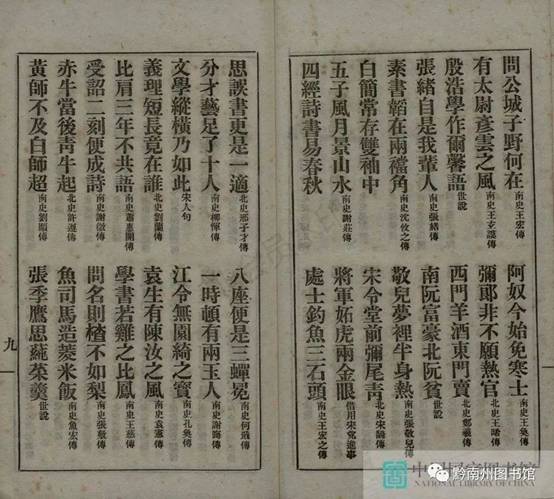 問公城子野何在 南史王宏傳 阿奴今始免寒士 南史王奐傳
有太尉彥雲之風 南史王玄謨傳 彌郎非不願熱官 北史王晞傳
殷浩學作爾馨語 世說 西門羊酒東門賣 北史鄭羲傳
張緒自是我輩人 南史張緒傳 南阮富豪北阮貧 世說
素書韜在兩襠角 南史沈攸之傳 敬兒夢裡半身熱 南史張敬兒傳
白簡常存雙袖中 宋令堂前彌尾青 北史宋翻傳
五子風月景山水 南史謝莊傳 將軍妬虎兩金眼 借用宋党進事
四經詩書易春秋 處士釣魚三石頭 南史王宏之傳
思誤書更是一適 北史邢子才傳 八座便是三蟬冕 南史何戢傳
分才藝足了十人 南史柳惲傳 一時頓有兩玉人 南史謝晦傳
文學縱橫乃如此 宋人句 江令無園綺之實 南史孔奐傳
義理短長竟在誰 北史劉蘭傳 袁生有陳汝之風 南史袁憲傳
比肩三年不共語 南史蕭惠開傳 學書若雞之比鳳 南史王慈傳
受詔二刻便成詩 南史謝徵傳 問名則樝不如梨 南史張敷傳
赤牛當後青牛起 北史許遵傳 魚司馬造菱米飯 南史魚宏傳
黃師不及白師超 南史劉顯傳 張季鷹思蓴菜羹 世說
九
黔南州图书馆
NATIONAL LIBRARY OF CHINA